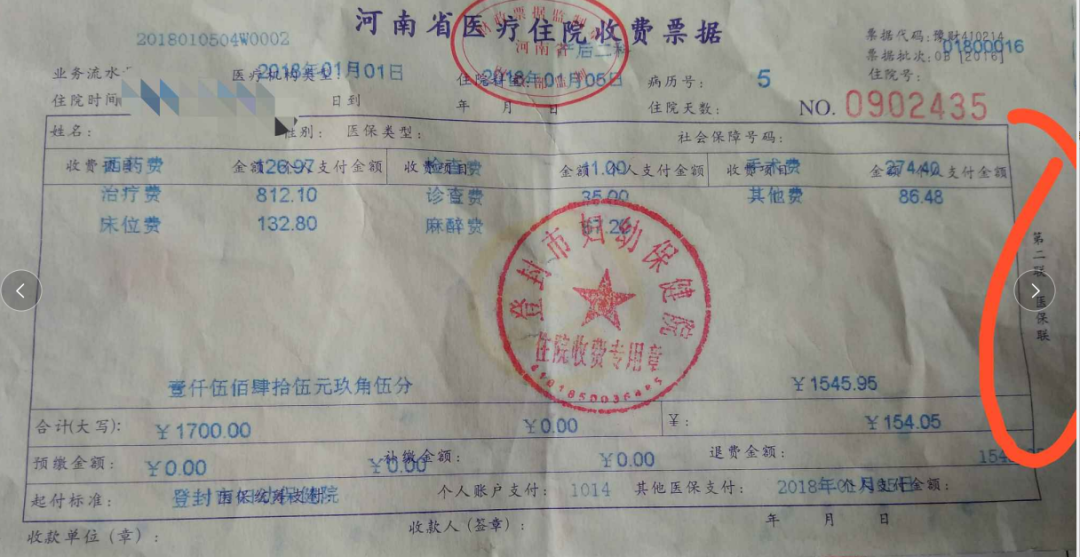 河南省医疗住院收费票据
2018010504W0002
票据代码:豫财410214
01800016
票据批次:0B [2016]
业务流水
医疗机构类型
2018年01月01日
2018年01月05日
产后二科
病历号:
5
住院号:
住院时间
日到
年 月 日
住院天数:
NO. 0902435
姓名:
性别:
医保类型:
社会保障号码:
收费项目 金额 个人支付金额 收费项目 金额 个人支付金额 收费项目 金额 个人支付金额
西药费 126.97 检查费 11.00 手术费 274.40
治疗费 812.10 诊查费 35.00 其他费 86.48
床位费 132.80 麻醉费 67.20
登封市妇幼保健院
住院收费专用章
第二联 医保联
壹仟伍佰肆拾伍元玖角伍分 ¥1545.95
合计(大写): ¥1700.00 ¥0.00 ¥: ¥154.05
预缴金额: ¥0.00 补缴金额: ¥0.00 ¥0.00 退费金额:
起付标准: 登封市妇幼保健院 个人账户支付: 1014 其他医保支付: 2018年01月05日
收款单位(章): 收款人(签章): 年 月 日